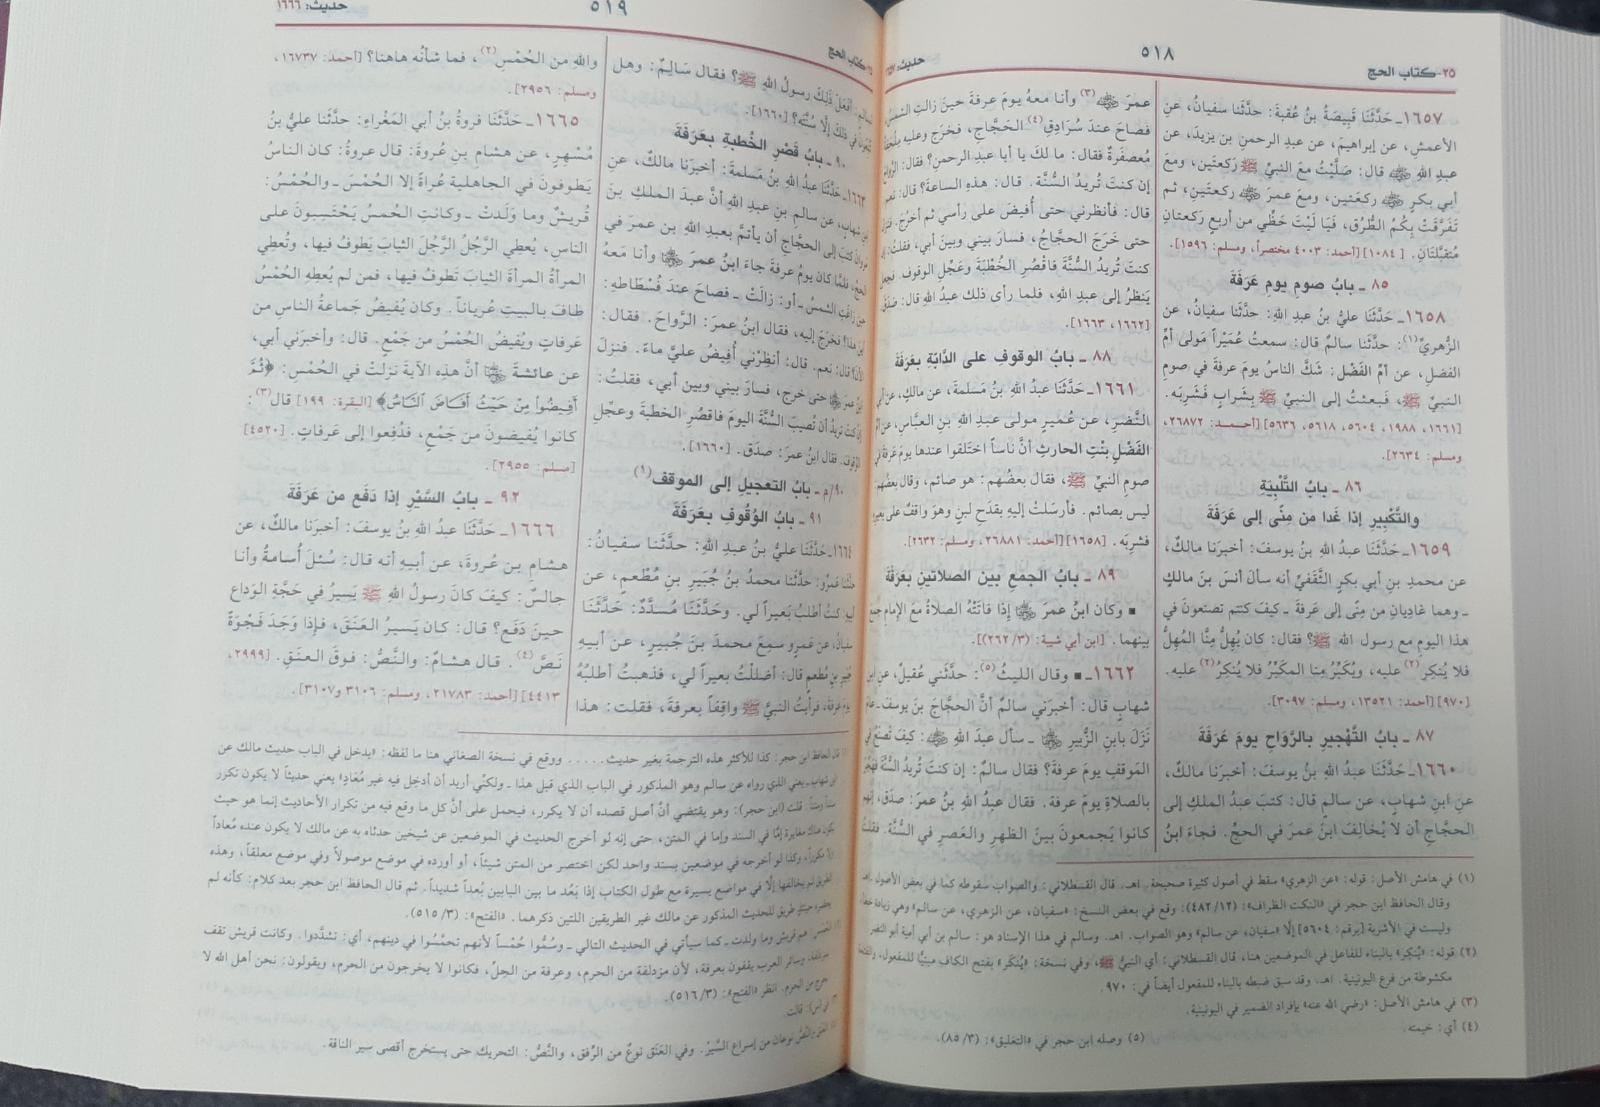 ٢٥- كتاب الحج
٥١٨
حديث: ١٦٥٧
١٦٥٧ـ حَدَّثَنَا قَبِيصَةُ بنُ عُقبةَ: حدَّثنا سفيانُ، عنِ
الأعمشِ، عن إبراهيمَ، عن عبدِ الرحمنِ بنِ يزيدَ، عن
عبدِ اللهِ ﷺ قال: صَلَّيْتُ معَ النبيِّ ﷺ رَكعتَين، ومعَ
أبي بكرٍ ﷺ ركعَتينِ، ومعَ عمرَ ﷺ ركعتَينِ، ثم
تَفرَّقَتْ بِكُمُ الطُّرُق، فَيَا لَيْتَ حَظِّي من أربعٍ رَكعتانِ
مُتقبَّلتَانِ. [١٠٨٤] [أحمد: ٤٠٠٣ مختصراً، ومسلم: ١٥٩٦].
٨٥ ـ بابُ صومِ يومِ عَرَفَةَ
١٦٥٨ـ حَدَّثَنَا عليُّ بنُ عبدِ اللهِ: حدَّثنا سفيانُ، عن
الزُّهريِّ(١): حدَّثنا سالمٌ قال: سمعتُ عُمَيْراً مَولى أمِّ
الفضلِ، عن أمِّ الفَضْل: شَكَّ الناسُ يومَ عرفةَ في صومِ
النبيِّ ﷺ، فبعثتُ إلى النبيِّ ﷺ بِشَرابٍ فشَرِبَه.
[١٦٦١، ١٩٨٨، ٥٦٠٤، ٥٦١٨، ٥٦٣٦] [أحمد: ٢٦٨٧٢،
ومسلم: ٢٦٣٤].
٨٦ ـ بابُ التَّلْبِيَةِ
والتَّكْبِيرِ إذا غَدا من مِنًى إلى عَرَفَةَ
١٦٥٩ـ حَدَّثَنَا عبدُ اللهِ بنُ يوسفَ: أخبرَنا مالكٌ،
عن محمدِ بنِ أبي بكرٍ الثَّقَفيِّ أنه سألَ أنسَ بنَ مالكٍ
ـ وهما غادِيانِ من مِنًى إلى عَرفةَ ـ كيفَ كنتم تصنعونَ في
هذا اليومِ مع رسول الله ﷺ؟ فقال: كان يُهِلُّ مِنَّا المُهِلُّ
فلا يُنكِرُ(٢) عليه، ويُكبِّرُ مِنا المكَبِّرُ فلا يُنكِرُ(٢) عليه.
[٩٧٠] [أحمد: ١٣٥٢١، ومسلم: ٣٠٩٧].
٨٧ ـ بابُ التَّهْجِيرِ بالرَّوَاحِ يومَ عَرَفَةَ
١٦٦٠ـ حَدَّثَنَا عبدُ اللهِ بنُ يوسفَ: أخبرَنا مالكٌ،
عنِ ابنِ شهابٍ، عن سالمٍ قال: كتبَ عبدُ الملكِ إلى
الحجَّاجِ أن لا يُخالِفَ ابنَ عمرَ في الحجِّ. فجاءَ ابنُ
عمرَ ﷺ(٣) وأنا معهُ يومَ عرفةَ حينَ زالتِ الشمسُ،
فصاحَ عندَ سُرَادِقِ(٤) الحَجَّاجِ، فخرَج وعليه مِلْحَفةٌ
مُعصفَرةٌ فقال: ما لكَ يا أبا عبدِ الرحمنِ؟ فقال: الرَّواحَ
إن كنتَ تُريدُ السُّنَّة. قال: هذهِ الساعةَ؟ قال: نعم.
قال: فأنظرني حتى أُفيضَ على رأسي ثم أخرُجَ. فنزَلَ
حتى خَرَجَ الحجَّاجُ، فسارَ بيني وبينَ أبي، فقلتُ: إن
كنتَ تُريدُ السُّنَّةَ فاقْصُرِ الخُطْبَةَ وعَجِّلِ الوقوف. فجعل
يَنظرُ إلى عبدِ اللهِ، فلما رأى ذلك عبدُ اللهِ قال: صدَقَ.
[١٦٦٢، ١٦٦٣].
٨٨ ـ بابُ الوقوفِ على الدَّابَّةِ بعَرَفَةَ
١٦٦١ـ حَدَّثَنَا عبدُ اللهِ بنُ مَسلمَةَ، عن مالكٍ، عن أبي
النَّضرِ، عن عُميرٍ مولى عبدِ اللهِ بنِ العبَّاسِ، عن أمِّ
الفَضْلِ بِنْتِ الحارثِ أنَّ ناساً اختَلَفوا عندها يومَ عَرَفةَ في
صومِ النبيِّ ﷺ، فقال بعضُهم: هو صائم، وقال بعضُهم:
ليس بصائم. فأرسَلَتْ إليهِ بقَدَحِ لبنٍ وهوَ واقفٌ على بعيرِه
فشَرِبَه. [١٦٥٨] [أحمد: ٢٦٨٨١، ومسلم: ٢٦٣٢].
٨٩ ـ بابُ الجمعِ بين الصلاتَينِ بعَرَفَةَ
▪ وكان ابنُ عمرَ ﷺ إذا فاتَتْهُ الصلاةُ معَ الإمامِ جمعَ
بينهما. [ابن أبي شيبة: (٣/ ٢٦٢)].
١٦٦٢ـ ▪ وقال الليثُ(٥): حدَّثني عُقيلٌ، عنِ ابنِ
شهابٍ قال: أخبرَني سالمٌ أنَّ الحجَّاجَ بنَ يوسفَ ـ عامَ
نَزَلَ بابنِ الزُّبيرِ ﷺ ـ سألَ عبدَ اللهِ ﷺ: كيفَ تَصنَعُ في
المَوقفِ يومَ عرفةَ؟ فقال سالمٌ: إن كنتَ تُريدُ السُّنَّةَ فهَجِّرْ
بالصلاةِ يومَ عرفة. فقال عبدُ اللهِ بنُ عمرَ: صدَقَ، إنهم
كانوا يَجمعونَ بينَ الظهرِ والعَصرِ في السُّنَّة. فقلتُ
(١) في هامش الأصل: قوله: «عن الزهري» سقط في أصول كثيرة صحيحة. اهـ. قال القسطلاني: والصواب سقوطه كما في بعض الأصول. اهـ.
وقال الحافظ ابن حجر في «النكت الظراف»: (١٢/ ٤٨٢): وقع في بعض النسخ: «سفيان، عن الزهري، عن سالم» وهي زيادة خطأ،
وليست في الأشربة [برقم: ٥٦٠٤] إلَّا «سفيان، عن سالم» وهو الصواب. اهـ. وسالم في هذا الإسناد هو: سالم بن أبي أمية أبو النضر
(٢) قوله: «يُنكِر» بالبناء للفاعل في الموضعين هنا، قال القسطلاني: أي النبيُّ ﷺ، وفي نسخة: «يُنكَر» بفتح الكاف مبنيًّا للمفعول،
مكشوطة من فرع اليونينية. اهـ. وقد سبق ضبطه بالبناء للمفعول أيضاً في: ٩٧٠.
(٣) في هامش الأصل: «رضي الله عنه» بإفراد الضمير في اليونينية.
(٤) أي: خيمته.
(٥) وصله ابن حجر في «التغليق»: (٣/ ٨٥).
كتاب الحج
٥١٩
حديث: ١٦٦٦
لسالمٍ: أفَعَلَ ذلِكَ رسولُ اللهِ ﷺ؟ فقال سَالِمٌ: وهل
في ذلكَ إلَّا سُنَّتَه؟ [١٦٦٠].
٩٠ ـ بابُ قَصْرِ الخُطبةِ بعَرَفَةَ
١٦٦٣ـ حَدَّثَنَا عبدُ اللهِ بنُ مَسلمةَ: أخبرَنا مالكٌ، عنِ
ابنِ شهابٍ، عن سالمِ بنِ عبدِ اللهِ أنَّ عبدَ الملكِ بنَ
مروانَ كتبَ إلى الحجَّاجِ أن يأتمَّ بعبدِ اللهِ بنِ عمرَ في
الحجِّ، فلمَّا كان يومُ عرفةَ جاءَ ابنُ عمرَ ﷺ وأنا مَعهُ
حينَ زاغَتِ الشمسُ ـ أو: زالَتْ ـ فصاحَ عندَ فُسْطَاطِه:
أينَ هذا؟ فخرَجَ إليه، فقال ابنُ عمرَ: الرَّواحَ. فقال:
الآنَ؟ قال: نعم. قال: أنظِرْني أُفِيضُ عليَّ ماءً. فنزلَ
ابنُ عمرَ ﷺ حتى خرج، فسارَ بيني وبين أبي، فقلتُ:
إن كنتَ تريدُ أن تُصيبَ السُّنَّةَ اليومَ فاقصُرِ الخطبةَ وعجِّلِ
الوقوفَ. فقال ابنُ عمرَ: صدَق. [١٦٦٠].
٩٠/م ـ بابُ التعجيلِ إلى الموقفِ(١)
٩١ ـ بابُ الوُقُوفِ بعَرَفَةَ
١٦٦٤ـ حَدَّثَنَا عليُّ بنُ عبدِ اللهِ: حدَّثَنا سفيانُ:
حدَّثنا عمرٌو: حدَّثَنا محمدُ بنُ جُبَيرِ بنِ مُطْعمٍ، عن
أبيهِ: كنتُ أطلبُ بَعيراً لي. وحَدَّثَنَا مُسدَّدٌ: حَدَّثَنَا
سفيانُ، عن عمرٍو سمِعَ محمدَ بنَ جُبيرٍ، عن أبيهِ
جُبَيرِ بنِ مُطعمٍ قال: أضللْتُ بعيراً لي، فذهبتُ أطلبُهُ
يومَ عَرفةَ، فرأيتُ النبيَّ ﷺ واقِفاً بعرفةَ، فقلت: هذا
واللهِ منَ الحُمْسِ(٢)، فما شأنُه هاهنا؟ [أحمد: ١٦٧٣٧،
ومسلم: ٢٩٥٦].
١٦٦٥ـ حَدَّثَنَا فروةُ بنُ أبي المَغْراءِ: حدَّثَنا عليُّ بنُ
مُسْهِرٍ، عن هشامِ بنِ عُروةَ: قال عروةُ: كان الناسُ
يَطوفونَ في الجاهليةِ عُراةً إلا الحُمْسَ ـ والحُمْسُ:
قُريشٌ وما وَلَدَتْ ـ وكانتِ الحُمسُ يَحْتَسِبونَ على
الناسِ، يُعطِي الرَّجُلُ الرَّجُلَ الثيابَ يَطوفُ فيها، وتُعطِي
المرأةُ المرأةَ الثيابَ تَطوفُ فيها، فمن لم يُعطِهِ الحُمْسُ
طافَ بالبيتِ عُرياناً. وكان يُفيضُ جَماعةُ الناسِ من
عَرفاتٍ ويُفيضُ الحُمْسُ من جَمْعٍ. قال: وأخبرَني أبي،
عن عائشةَ ﷺ أنَّ هذِهِ الآيةَ نزلَتْ في الحُمْسِ: ﴿ثُمَّ
أَفِيضُواْ مِنْ حَيْثُ أَفَاضَ النَّاسُ﴾ [البقرة: ١٩٩] قال(٣):
كانوا يُفيضونَ مِن جَمْعٍ، فدُفعوا إلى عَرفاتٍ. [٤٥٢٠]
[مسلم: ٢٩٥٥].
٩٢ ـ بابُ السَّيْرِ إذا دَفَع من عَرَفَةَ
١٦٦٦ـ حَدَّثَنَا عبدُ اللهِ بنُ يوسفَ: أخبرَنا مالكٌ، عن
هشامِ بنِ عُروةَ، عن أبيهِ أنه قال: سُئلَ أُسامةُ وأنا
جالسٌ: كيفَ كانَ رسولُ اللهِ ﷺ يَسيرُ في حَجَّةِ الوَداعِ
حينَ دَفَع؟ قال: كان يَسيرُ العَنَقَ، فإذا وَجَدَ فَجْوَةً
نَصَّ(٤). قال هشامٌ: والنَّصُّ: فوقَ العنَقِ. [٢٩٩٩،
٤٤١٣] [أحمد: ٢١٧٨٣، ومسلم: ٣١٠٦ و٣١٠٧].
قال الحافظ ابن حجر: كذا للأكثر هذه الترجمة بغير حديث..... ووقع في نسخة الصغاني هنا ما لفظه: «يدخل في الباب حديث مالك عن
ابن شهاب ـ يعني الذي رواه عن سالم وهو المذكور في الباب الذي قبل هذا ـ ولكنّي أريد أن أدخل فيه غير مُعَادٍ» يعني حديثاً لا يكون تكرر
سنداً ومتناً. قلت (ابن حجر): وهو يقتضي أنَّ أصل قصده أن لا يكرر، فيحمل على أنَّ كل ما وقع فيه من تكرار الأحاديث إنما هو حيث
يكون هناك مغايرة إمَّا في السند وإما في المتن، حتى إنه لو أخرج الحديث في الموضعين عن شيخين حدثاه به عن مالك لا يكون عنده مُعاداً
ولا مكرراً، وكذا لو أخرجه في موضعين بسند واحد لكن اختصر من المتن شيئاً، أو أورده في موضع موصولاً وفي موضع معلقاً، وهذه
الطريق لم يخالفها إلَّا في مواضع يسيرة مع طول الكتاب إذا بَعُد ما بين البابين بُعداً شديداً. ثم قال الحافظ ابن حجر بعد كلام: كأنه لم
يحضره حينئذٍ طريق للحديث المذكور عن مالك غير الطريقين اللتين ذكرهما. «الفتح»: (٣/ ٥١٥).
هم قريش وما ولدت ـ كما سيأتي في الحديث التالي ـ وسُمُّوا حُمْساً لأنهم تحمَّسُوا في دينهم، أي: تشدَّدوا. وكانت قريش تقف
بمزدلفة، وسائر العرب يقفون بعرفة، لأن مزدلفة من الحرم، وعرفة من الحِلِّ، فكانوا لا يخرجون من الحرم، ويقولون: نحن أهل الله لا
نخرج من الحرم. انظر «الفتح»: (٣/ ٥١٦).
قالت.
العَنَق والنَّصُّ نوعان من إسراع السَّيْر. وفي العَنَق نوعٌ من الرِّفق، والنَّصُّ: التحريك حتى يستخرج أقصى سير الناقة.